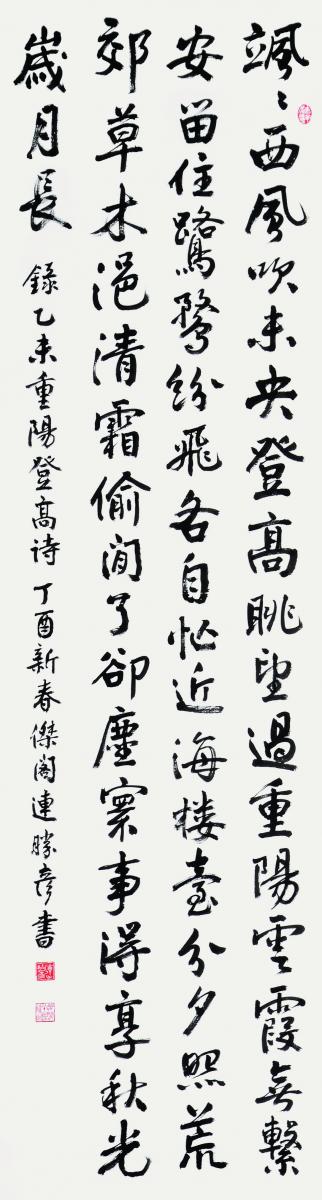 颯〻西風吹未央登高眺望過重陽雲霞無繫
安留住鷺鶩紛飛各自忙近海楼臺分夕照荒
郊草木浥清霜偷閒了卻塵寰事得享秋光
歲月長
錄乙未重陽登高詩 丁酉新春傑閣連勝彥書